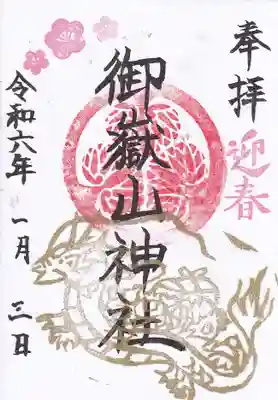 奉拝
迎春
御嶽山神社
令和六年
一月
三日